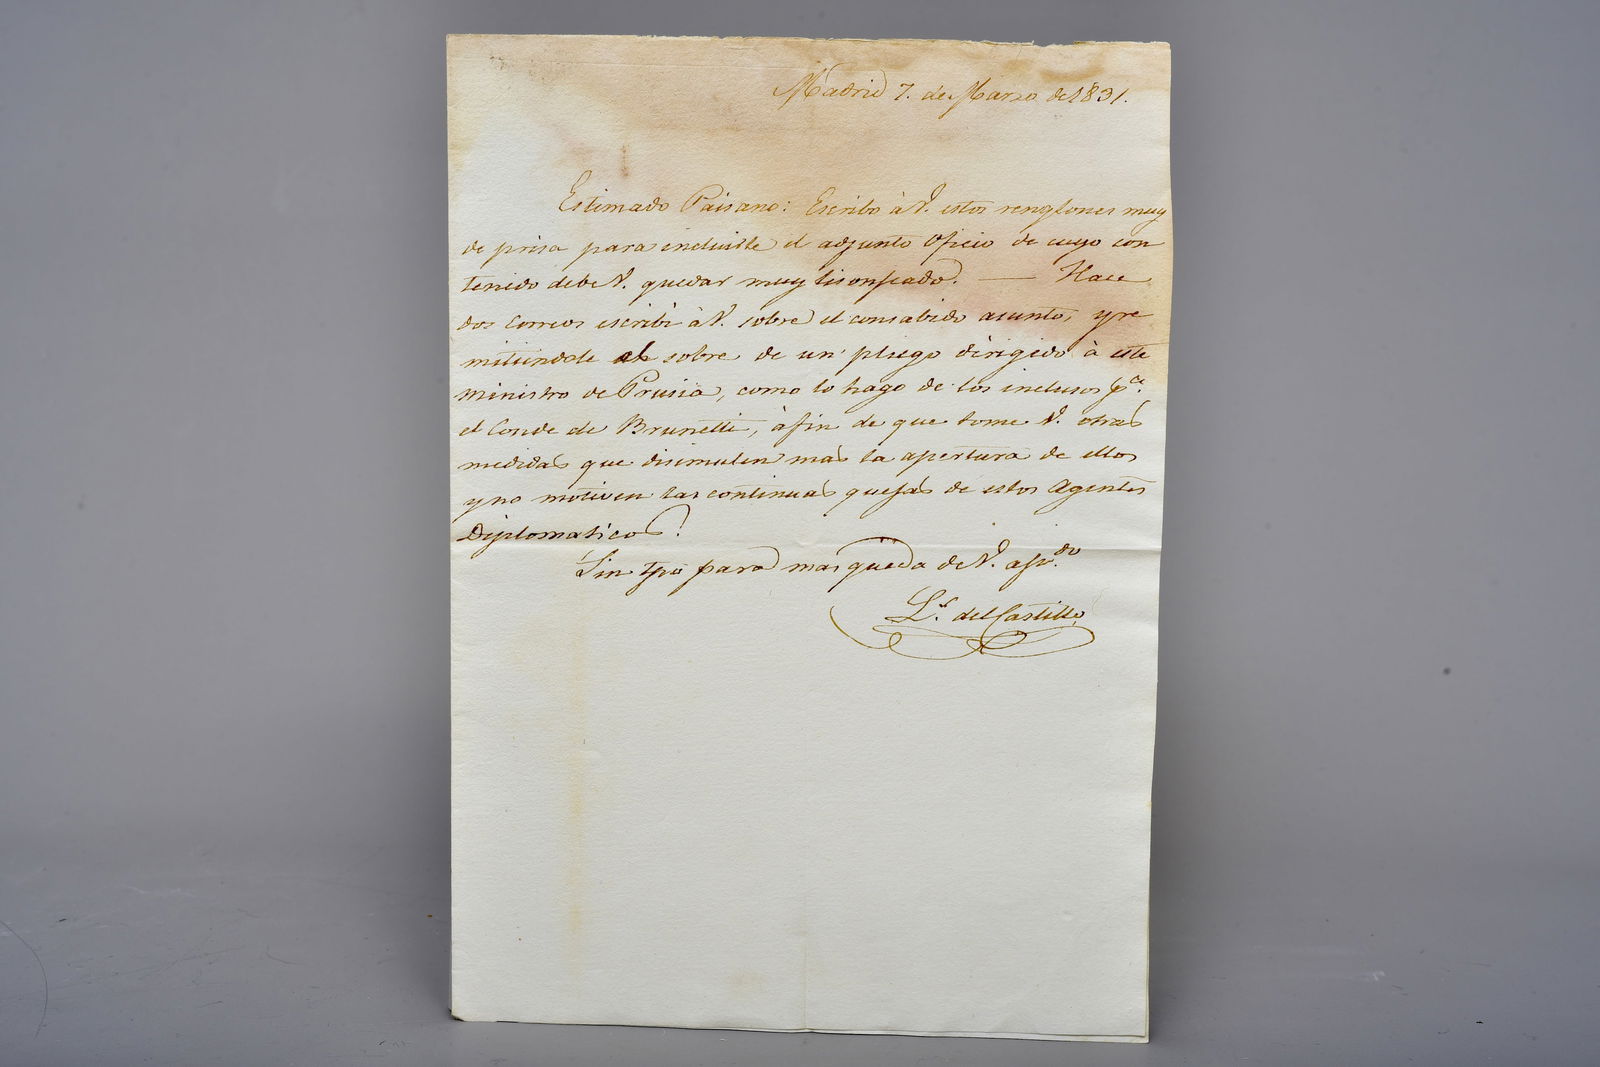 Madrid 7. de Marzo de 1831.
Estimado Paisano: Escribo à V. estos renglones muy
de prisa para incluirle el adjunto Oficio de cuyo con
tenido debe V. quedar muy lisonjeado. — Hace
dos Correos escribi à V. sobre el consabido asunto, y re
mitiendole el sobre de un pliego dirigido à este
Ministro de Prusia, como lo hago de los inclusos pa.
el Conde de Brunetti, à fin de que tome V. otras
medidas que disimulen mas la apertura de ellos
y no motiven las continuas quejas de estos Agentes
Diplomaticos.
Sin tpo para mas queda de V. afmo.
Ls. del Castillo